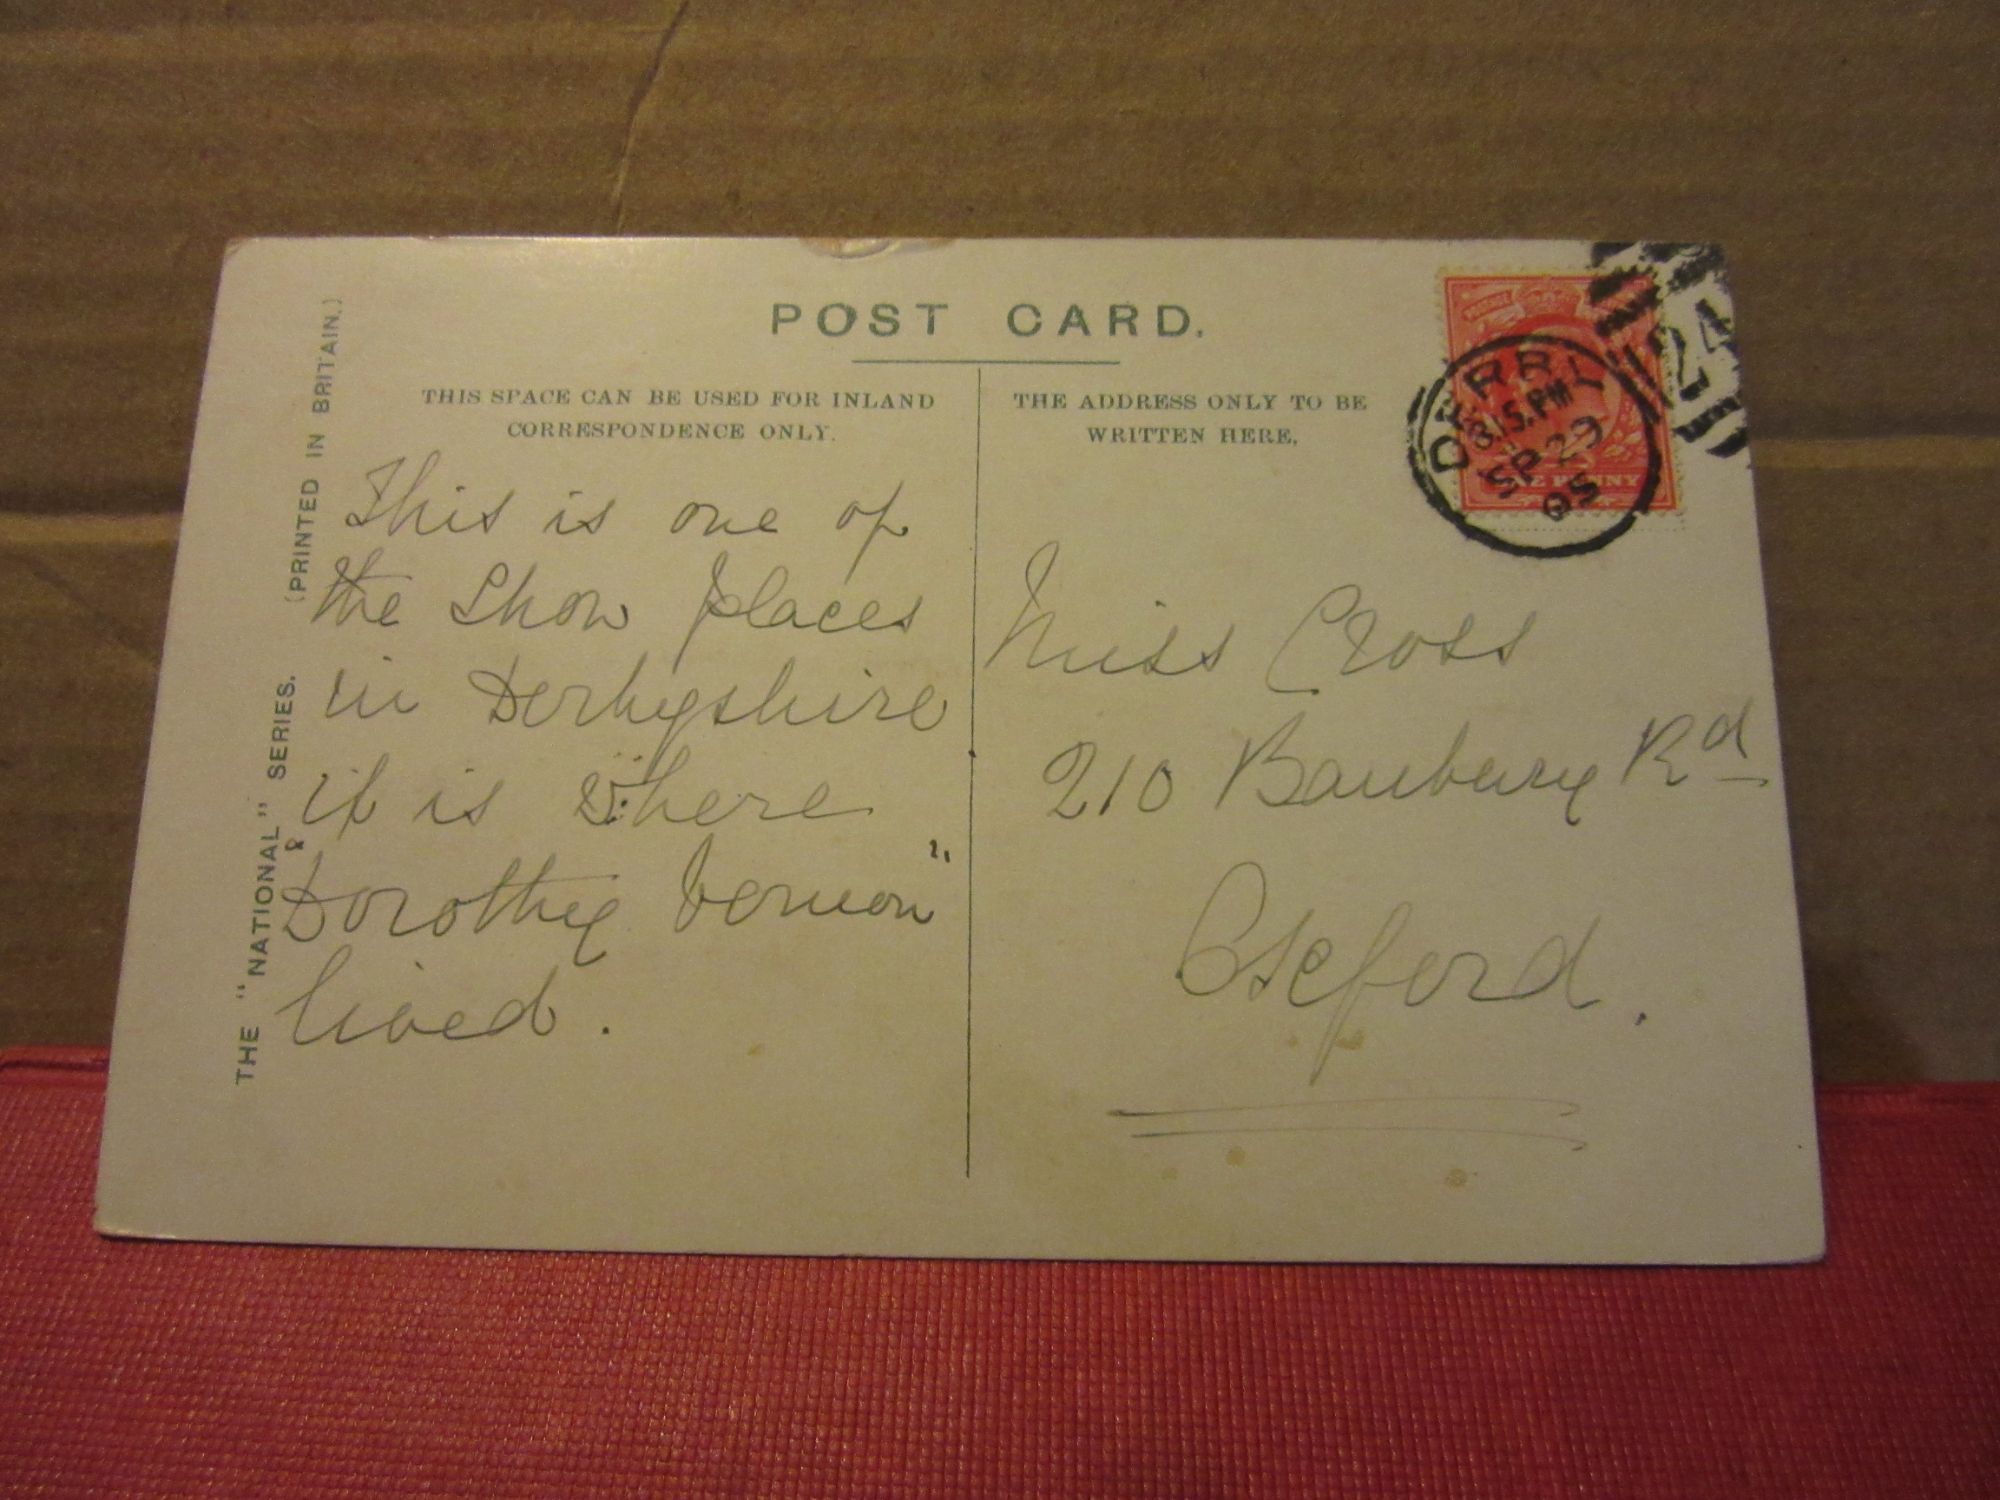 POST CARD.
THIS SPACE CAN BE USED FOR INLAND
CORRESPONDENCE ONLY.
THE ADDRESS ONLY TO BE
WRITTEN HERE.
THE "NATIONAL" SERIES. (PRINTED IN BRITAIN.)
This is one of
the Show places
in Derbyshire
it is where
"Dorothy Vernon"
lived.
Miss Cross
210 Banbury Rd
Oxford.
DERBY
815.PM
SP 29
05
124
ONE PENNY